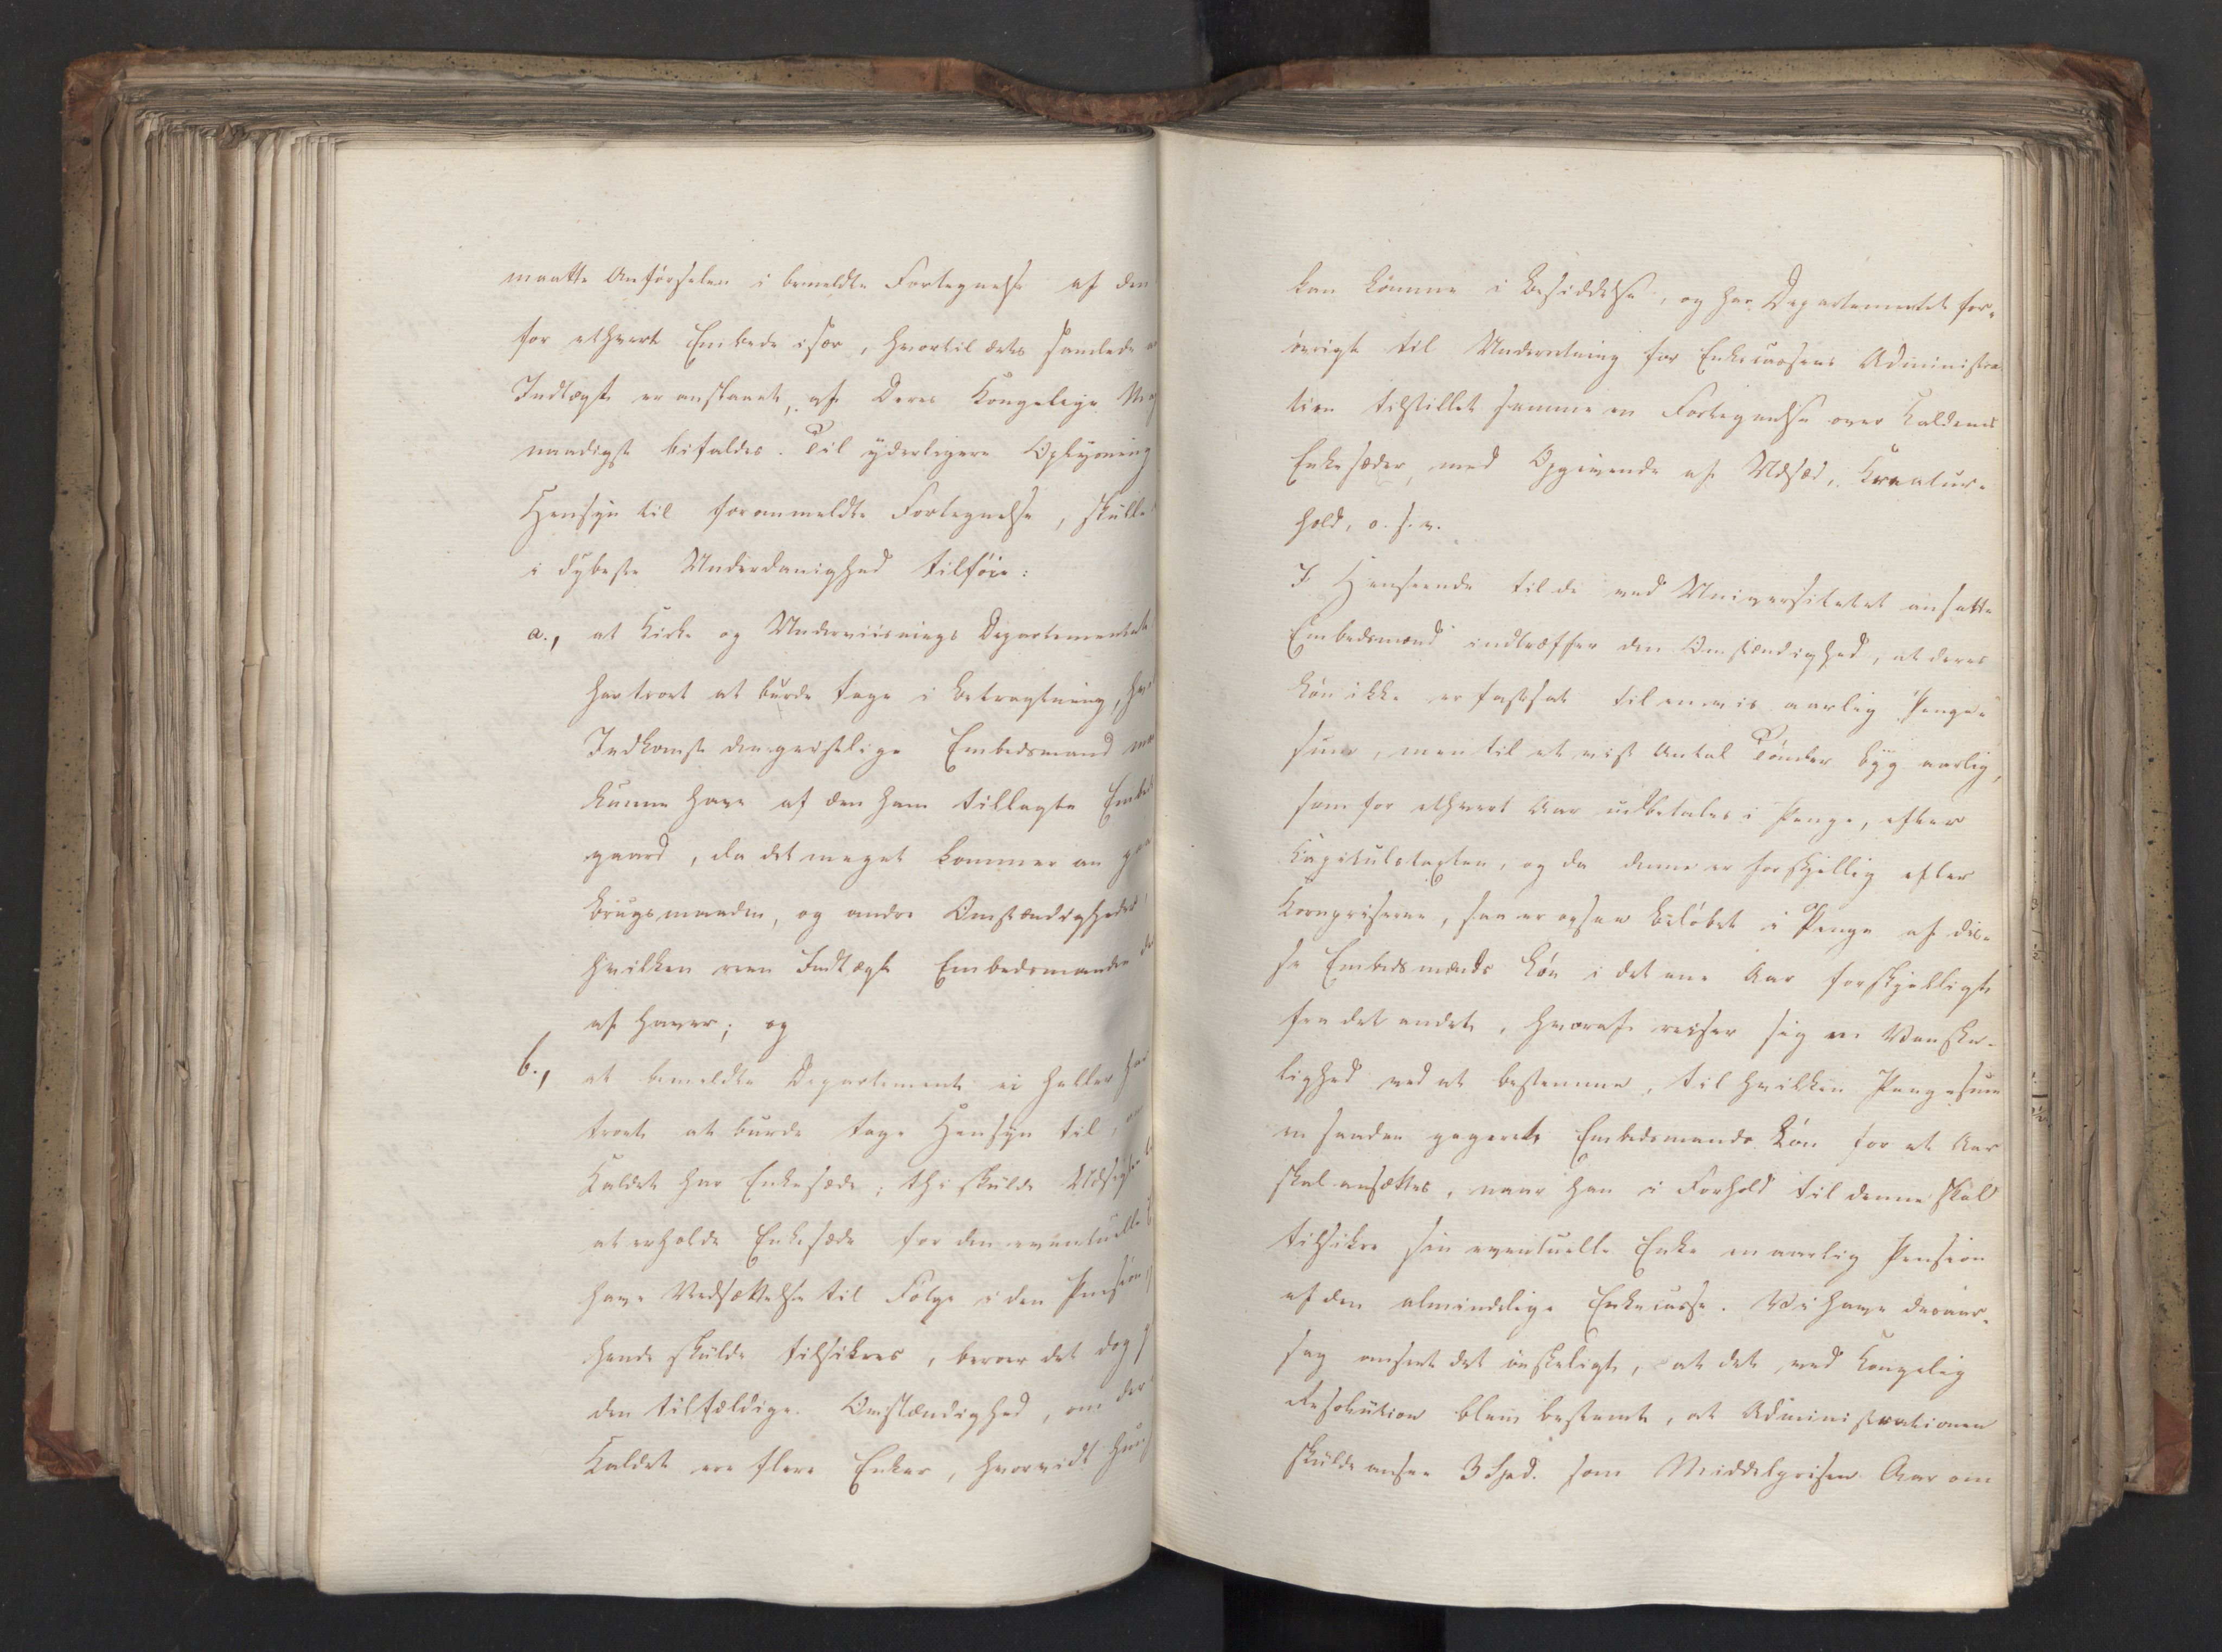 maatte Anførselen i bemeldte Fortegnelse af den
for ethvert Embede især, hvortil dets samlede
Indtægt er anslaaet, af Deres Kongelige Maj
naadigst bifaldes. Til yderligere Oplysning
Hensyn til foranmeldte Fortegnelse, skulle
i dybeste Underdanighed tilføie:
a., at Kirke og Underviisnings Departementet
har troet at burde tage i Betragtning,
Indkomst den geistlige Embedsmand
kunne have af den ham tillagte Embeds
gaard, da det meget kommer an paa
Brugsmaaden, og andre Omstændigheder
hvilken reen Indtægt Embedsmanden
af haver; og
b., at bemeldte Departement ei heller har
troet at burde tage Hensyn til, om
Kaldet har Enkesæde; thi skulde Udsigten
at erholde Enkesæde for den eventuelle
have Nedsættelse til Følge i den Pension
hende skulde tilsikres, beroer det dog
den tilfældige Omstændighed, om der
Kaldet ere flere Enker, hvorvidt hun
kan komme i Besiddelse, og har Departementet for¬
øvrigt til Underretning for Enkecassens Administra
tion tilstillet samme en Fortegnelse over Kaldenes
Enkesæder, med Opgivende af Udsæd, Kreatur¬
hold, o. s. v.
I Henseende til de ved Universitetet ansatte
Embedsmænd indtræffer den Omstændighed, at deres
Løn ikke er fastsat til en vis aarlig Penge¬
sum, men til et vist Antal Tønder Byg aarlig,
som for ethvert Aar udbetales i Penge, efter
Capitulstaxten, og da denne er forskjellig efter
Kornpriserne, saa er ogsaa Beløbet i Penge af dis¬
se Embedsmænds Løn i det ene Aar forskjelligt
fra det andet, hvoraf reiser sig en Vanske¬
lighed ved at bestemme, til hvilken Pengesum
en saadan gageret Embedsmands Løn for et Aar
skal ansættes, naar han i Forhold til denne skal
tilsikre sin eventuelle Enke en aarlig Pension
af den almindelige Enkecasse. Vi have desaar¬
sag anseet det ønskeligt, at det ved Kongelig
Resolution blev bestemt, at Administrationen
skulde ansee 3 Spd. som Middelprisen Aar om